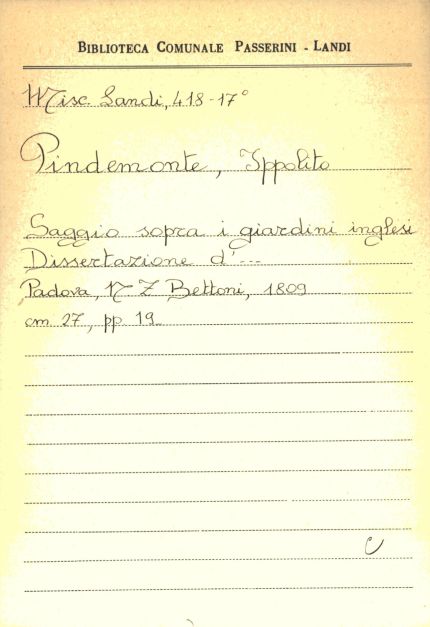 BIBLIOTECA COMUNALE PASSERINI - LANDI
Misc. Landi, 418-17°
Pindemonte, Ippolito
Saggio sopra i giardini inglesi
Dissertazione d'...
Padova, N Z Bettoni, 1809
cm 27, pp. 19
C